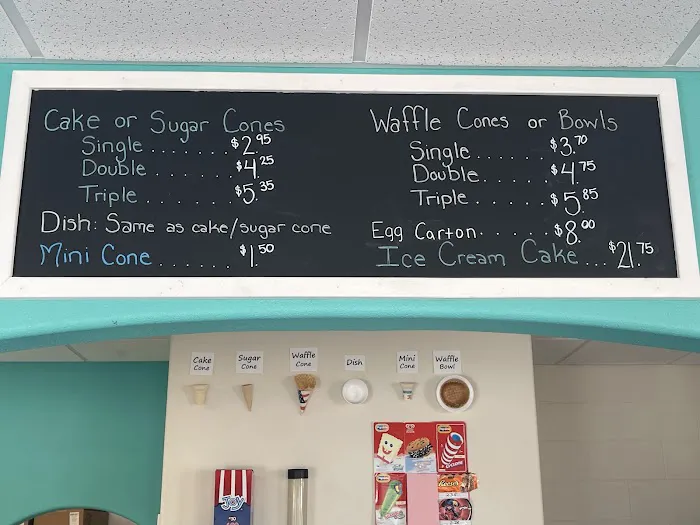 Cake or Sugar Cones
Single ....... $2.95
Double ....... $4.25
Triple ....... $5.35
Dish: Same as cake/sugar cone
Mini Cone ....... $1.50
Waffle Cones or Bowls
Single ...... $3.70
Double ...... $4.75
Triple ...... $5.85
Egg Carton ..... $8.00
Ice Cream Cake ... $21.75
Cake Cone
Sugar Cone
Waffle Cone
Dish
Mini Cone
Waffle Bowl
JOY
Reese's